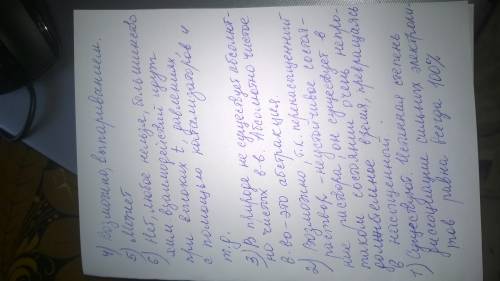 4) Возможно, выпариванием.
5) Может
6) Нет, любое нельзя, большинство
хим взаимодействий идут
при высоких t, давлениях
с помощью катализаторов и
т.д.
3) В природе не существует абсолют-
но чистых в-в. Абсолютно чистое
в-во - это абстракция
2) Возможно т.к. перенасыщенный
раствор - неустойчивое состоя-
ние раствора, он существует в
таком состоянии очень непро-
должительное время, превращаясь
в насыщенной
1) Существуют. Истинная степень
диссоциации сильных электроли-
тов равна всегда 100%